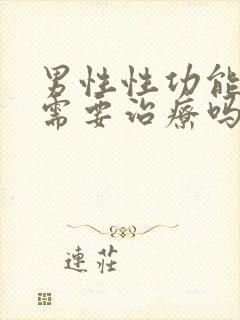 男性性功能
需要治療吗
連莊